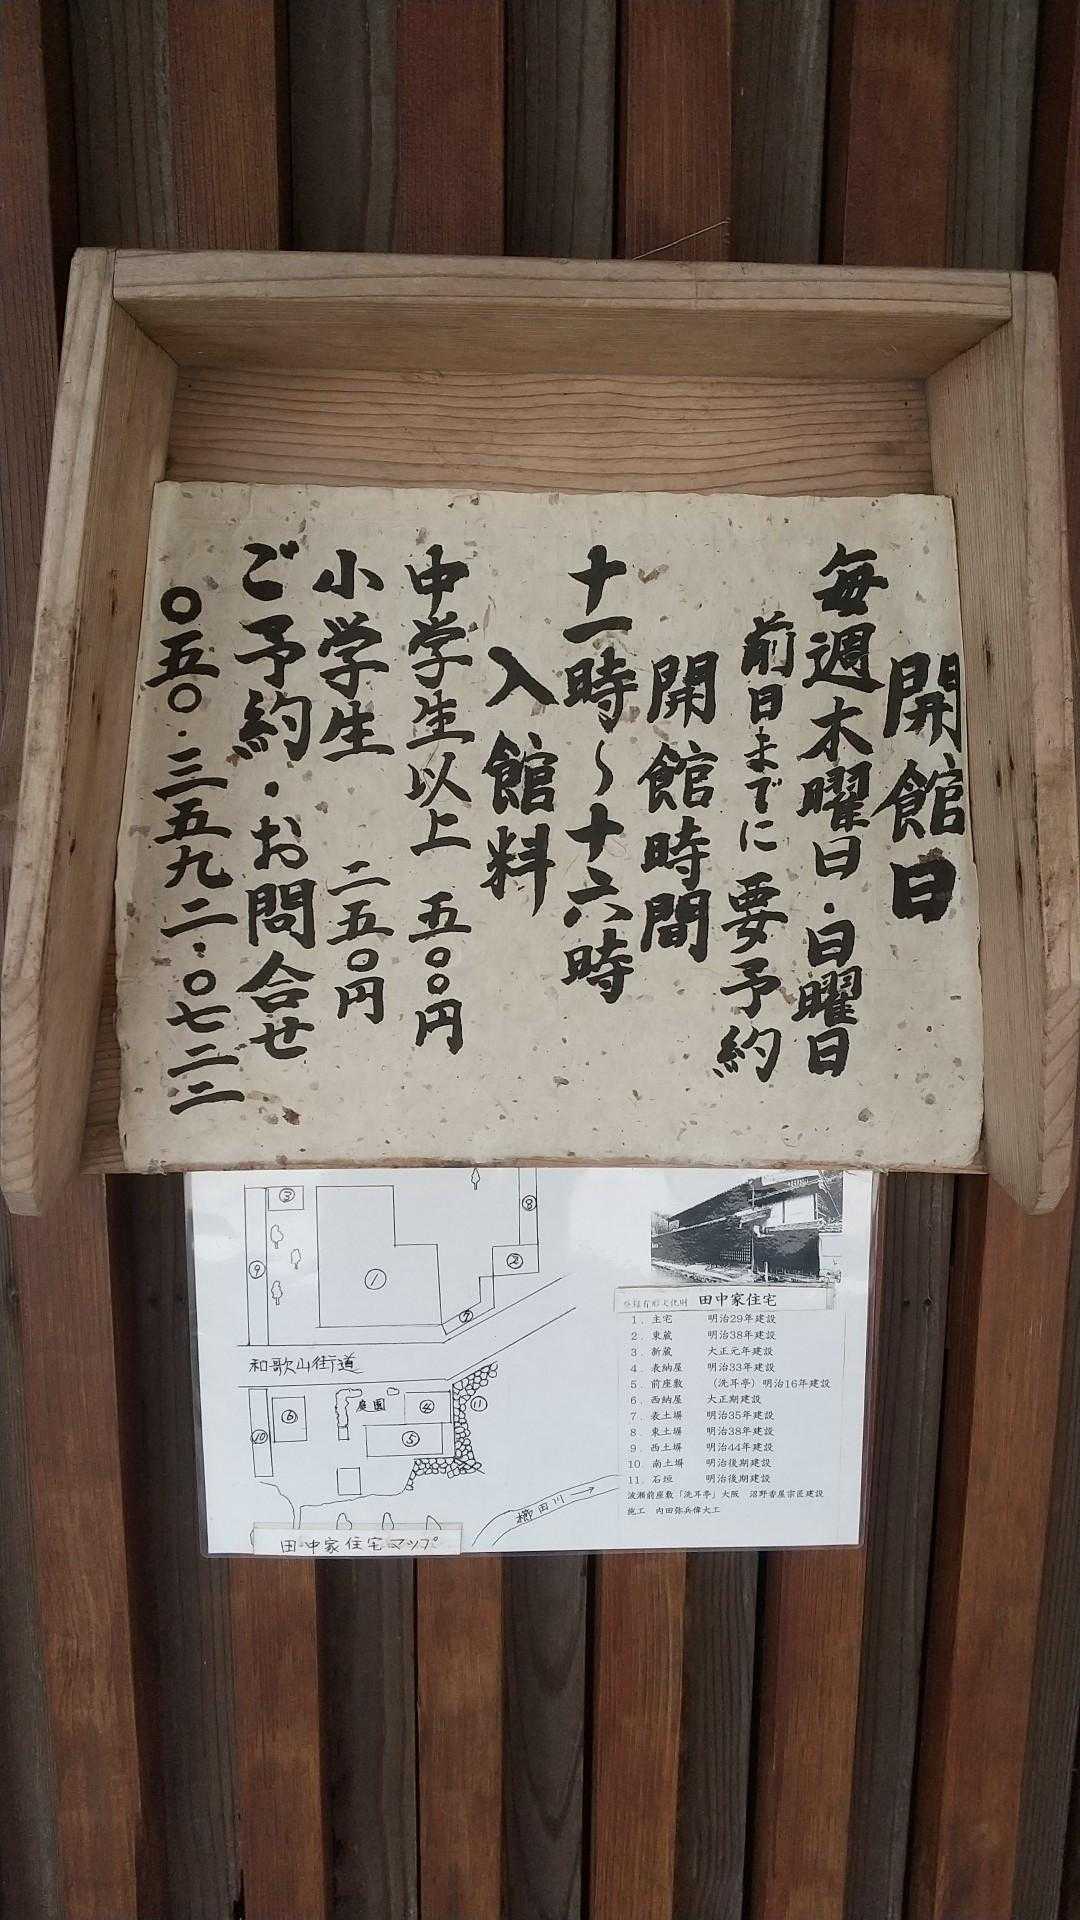 開館日
毎週木曜日・日曜日
前日までに要予約
開館時間
十一時～十六時
入館料
中学生以上 五〇〇円
小学生 二五〇円
ご予約・お問合せ
〇五〇・三五九二・〇七二二
③
⑧
①
②
⑨
⑦
和歌山街道
庭園
④
⑪
⑥
⑤
⑩
櫛田川
田中家住宅マップ
登録有形文化財 田中家住宅
1. 主宅 明治29年建設
2. 東蔵 明治38年建設
3. 新蔵 大正元年建設
4. 表納屋 明治33年建設
5. 前座敷 (洗耳亭) 明治16年建設
6. 西納屋 大正期建設
7. 表土塀 明治35年建設
8. 東土塀 明治38年建設
9. 西土塀 明治44年建設
10. 南土塀 明治後期建設
11. 石垣 明治後期建設
波瀬前座敷「洗耳亭」大阪 沼野香屋宗匠建設
施工 内田弥兵偉大工